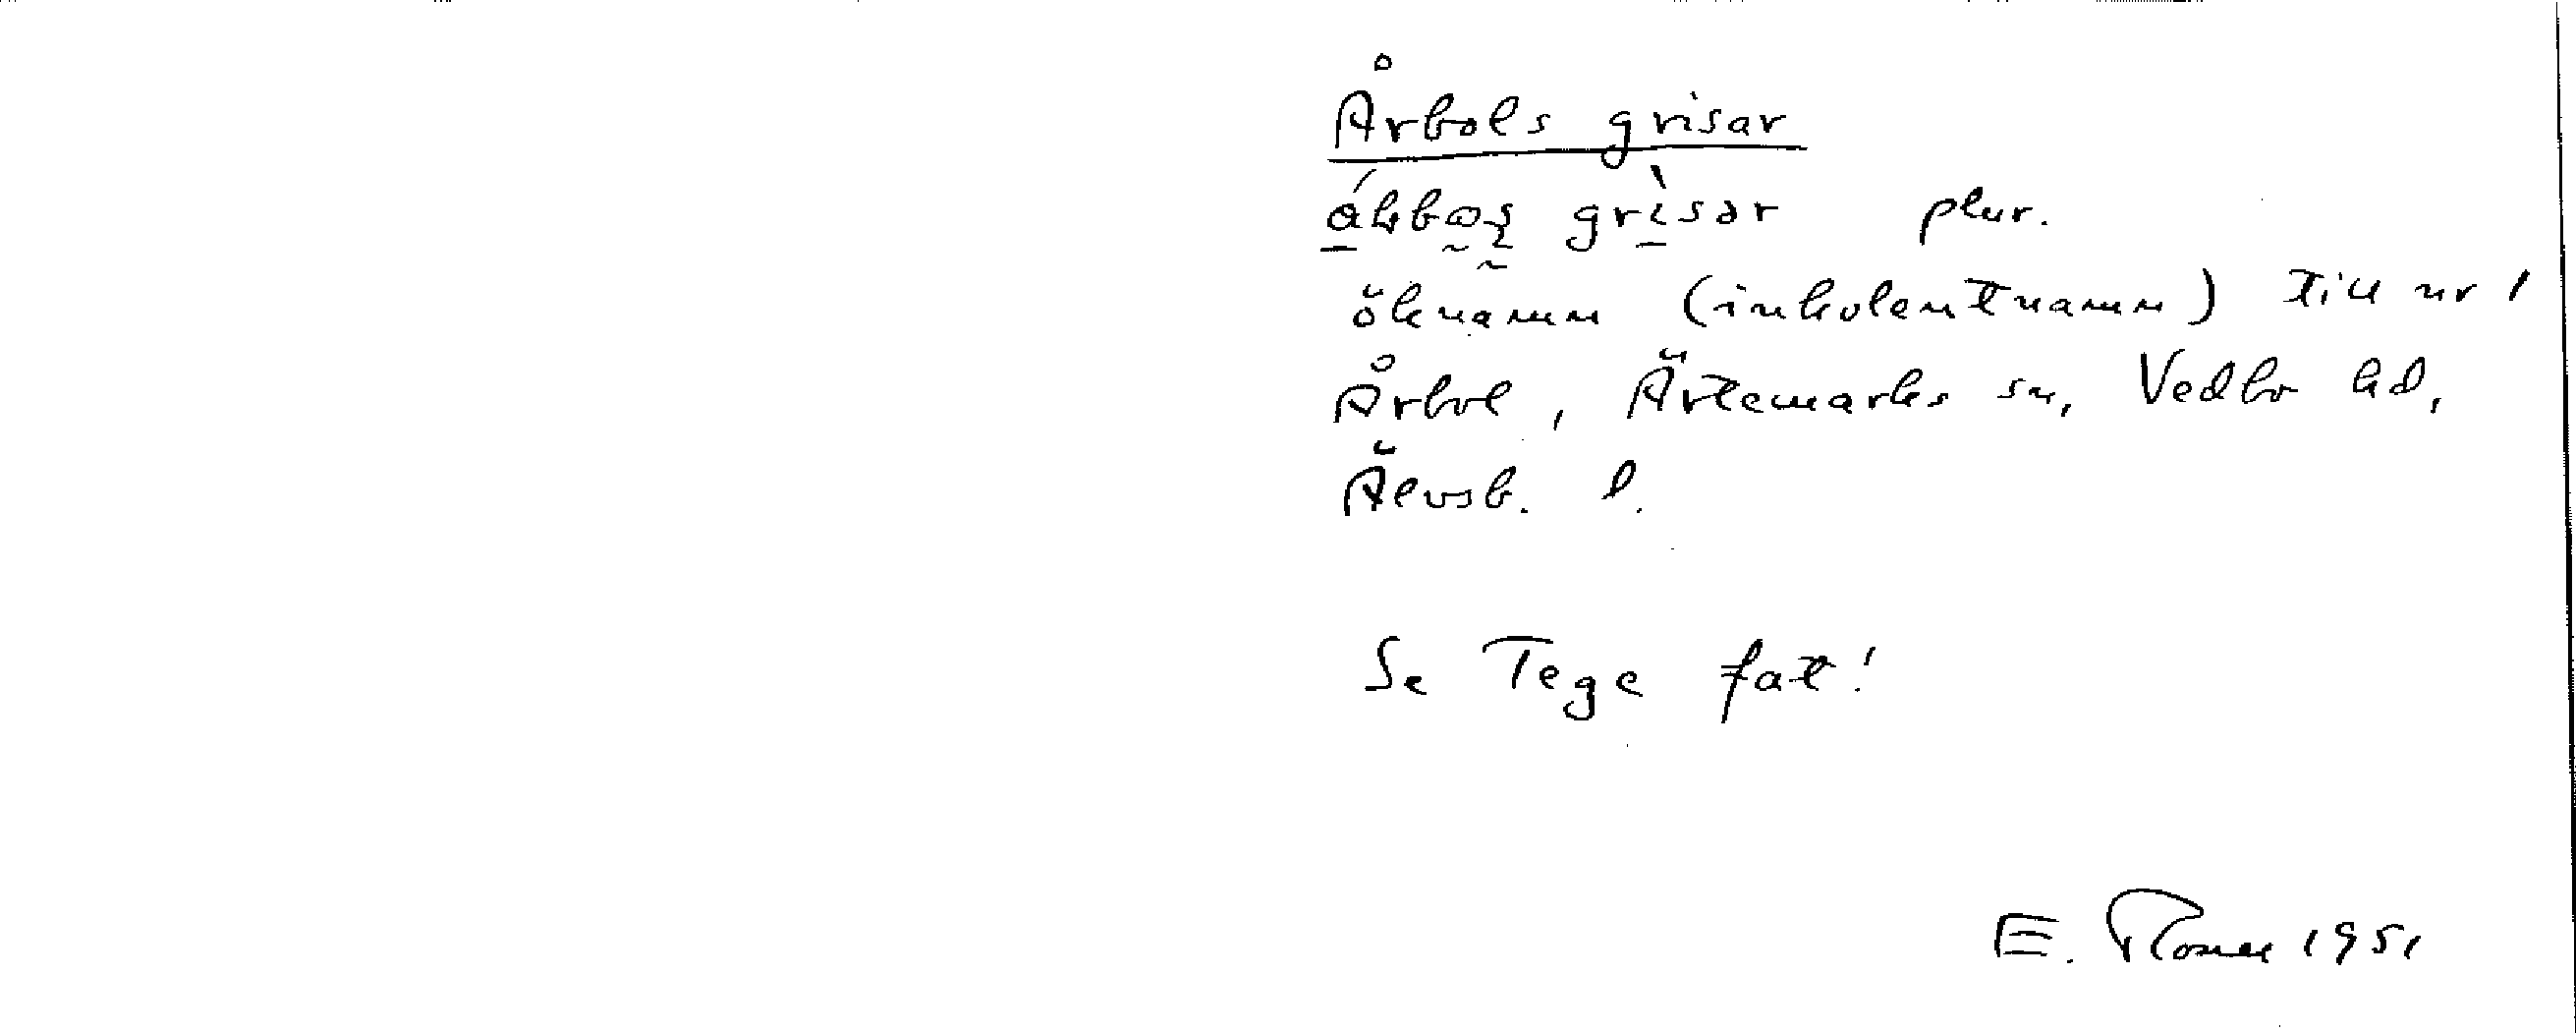 Årbols grisar
grisar plur.
öknamn (inkolentnamn) till nr 1
Årbol, Ärtemarks sn, Vedbo hd,
Älvsb. l.
Se Tege fat!
E. 1951